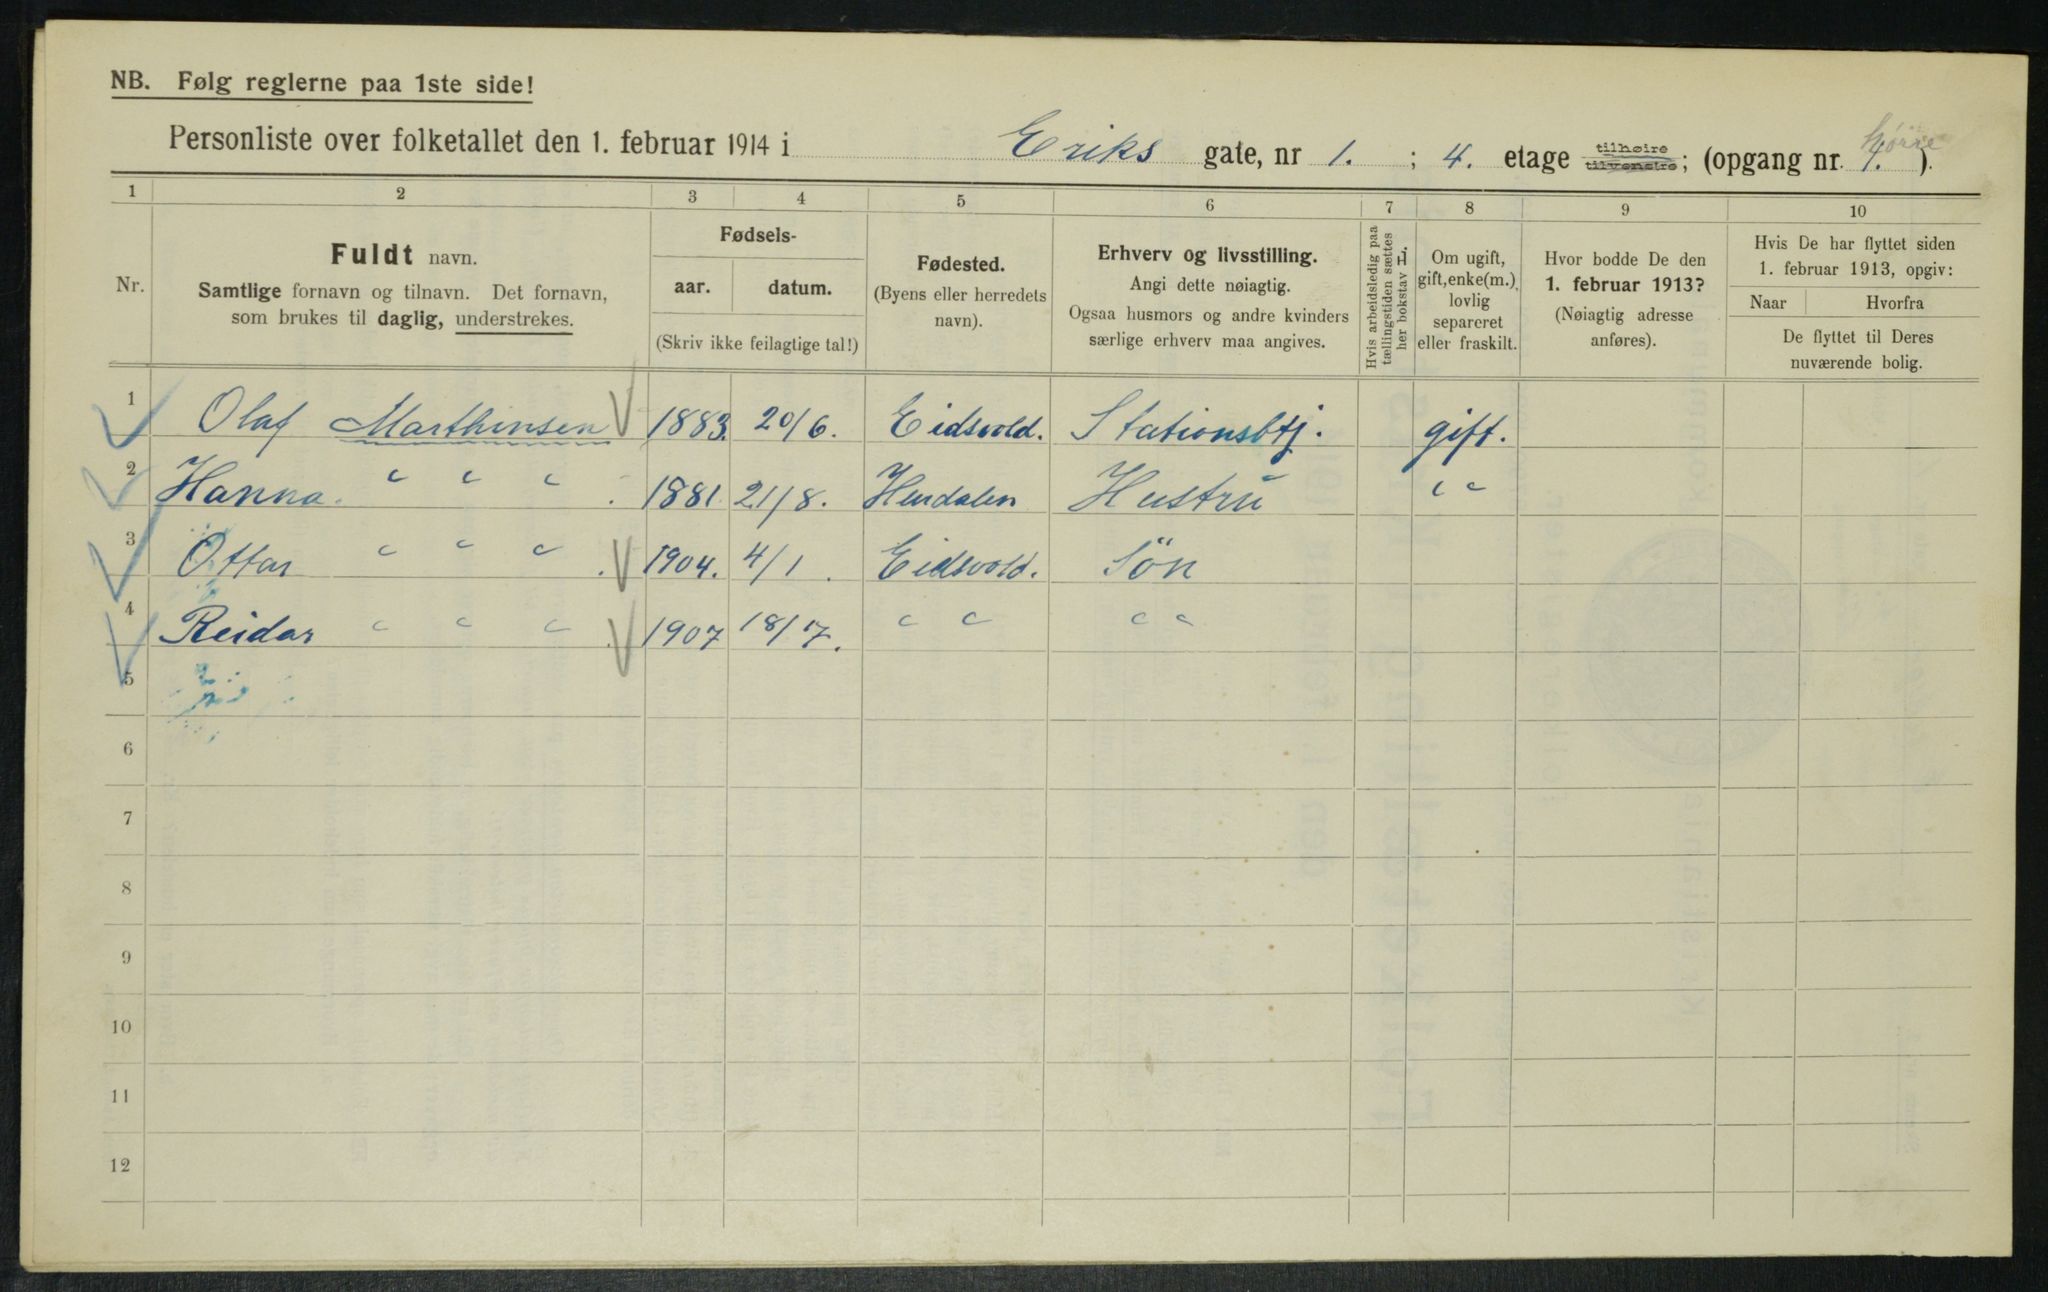 NB. Følg reglerne paa 1ste side!
Personliste over folketallet den 1. februar 1914 i Eriks gate, nr 1. ; 4. etage tilhøire tilvenstre; (opgang nr. 1. ).
1 2 3 4 5 6 7 8 9 10
Nr.
Fuldt navn.
Samtlige fornavn og tilnavn. Det fornavn,
som brukes til daglig, understrekes.
Fødsels-
aar. datum.
(Skriv ikke feilagtige tal!)
Fødested.
(Byens eller herredets
navn).
Erhverv og livsstilling.
Angi dette nøiagtig.
Ogsaa husmors og andre kvinders
særlige erhverv maa angives.
Hvis arbeidsledig paa
tællingstiden sættes
her bokstav L.
Om ugift,
gift, enke(m.),
lovlig
separeret
eller fraskilt.
Hvor bodde De den
1. februar 1913?
(Nøiagtig adresse
anføres).
Hvis De har flyttet siden
1. februar 1913, opgiv:
Naar Hvorfra
De flyttet til Deres
nuværende bolig.
1 Olaf Marthinsen 1883. 20/6. Eidsvold. Stationsbtj. gift.
2 Hanna. " " " 1881. 21/8. Hurdalen Hustru " "
3 Ottar " " " 1904. 4/1. Eidsvold. Sön
4 Reidar " " " 1907 18/7. " " " "
5
6
7
8
9
10
11
12